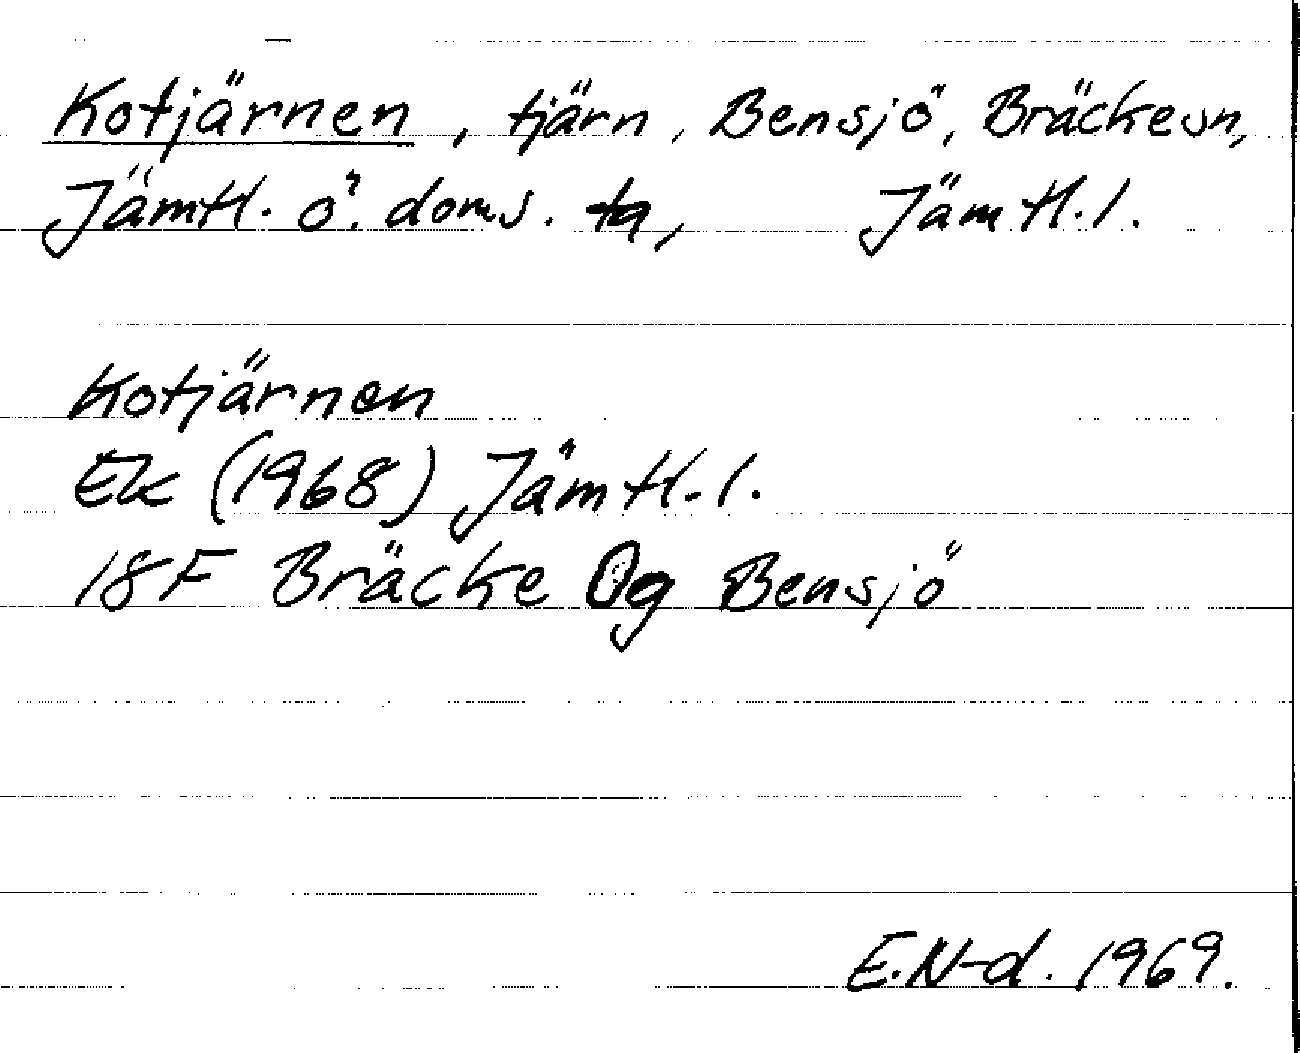 Kotjärnen, tjärn, Bensjö, Bräcke sn,
Jämtl. ö. doms. ta, Jämtl. l.
Kotjärnen
Ek (1968) Jämtl. l.
18F Bräcke 0g Bensjö
E. N-d. 1969.